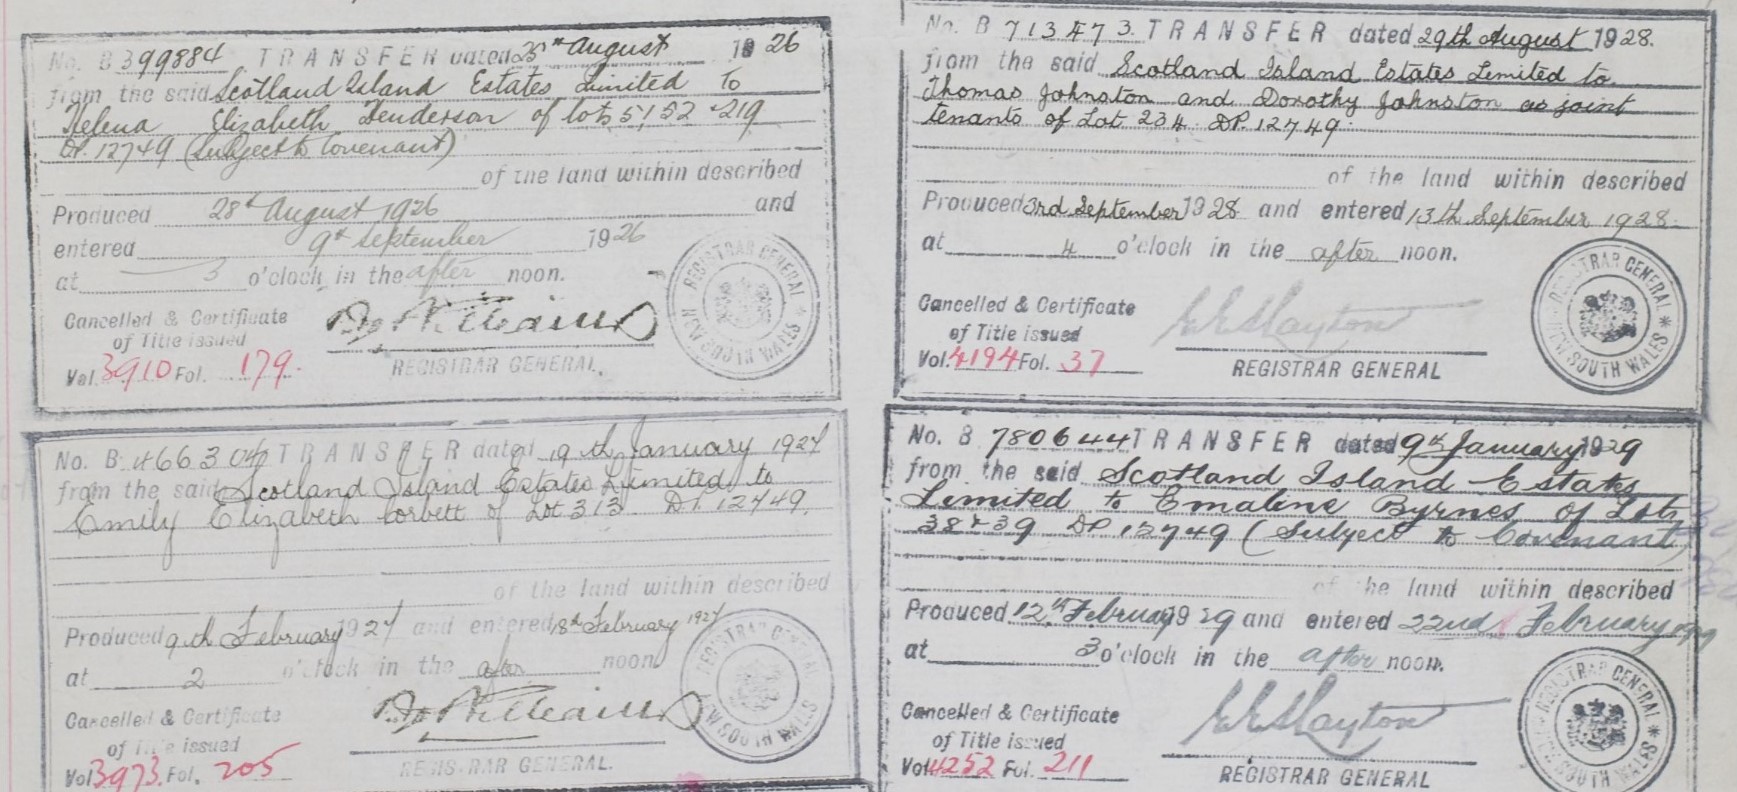 No. B 399884 TRANSFER dated 25th August 1926
from the said Scotland Island Estates Limited to
Helena Elizabeth Henderson of lots 51 52 - 219
DP. 12749 (Subject to Covenant)
of the land within described
Produced 28th August 1926 and
entered 9th September 1926
at 3 o'clock in the after noon.
Cancelled & Certificate
of Title issued
Vol. 3910 Fol. 179.
REGISTRAR GENERAL.
REGISTRAR GENERAL
NEW SOUTH WALES
No. B 466304 TRANSFER dated 19th January 1927
from the said Scotland Island Estates Limited to
Emily Elizabeth Corbett of Lot 313 DP. 12749.
of the land within described
Produced 9th February 1927 and entered 18th February 1927
at 2 o'clock in the after noon
Cancelled & Certificate
of Title issued
Vol 3973 Fol. 205
REGISTRAR GENERAL.
REGISTRAR GENERAL
NEW SOUTH WALES
No. B 713473 TRANSFER dated 29th August 1928.
from the said Scotland Island Estates Limited to
Thomas Johnston and Dorothy Johnston as joint
tenants of Lot 234 DP. 12749.
of the land within described
Produced 3rd September 1928 and entered 13th September 1928.
at 4 o'clock in the after noon.
Cancelled & Certificate
of Title issued
Vol. 4194 Fol. 37
REGISTRAR GENERAL
REGISTRAR GENERAL
NEW SOUTH WALES
No. B 780644 TRANSFER dated 9th January 1929
from the said Scotland Island Estates
Limited to Emaline Byrnes of Lots
38 & 39 DP 12749 (Subject to Covenant)
of the land within described
Produced 12th February 1929 and entered 22nd February 1929
at 3 o'clock in the after noon.
Cancelled & Certificate
of Title issued
Vol. 4252 Fol. 211
REGISTRAR GENERAL
REGISTRAR GENERAL
NEW SOUTH WALES